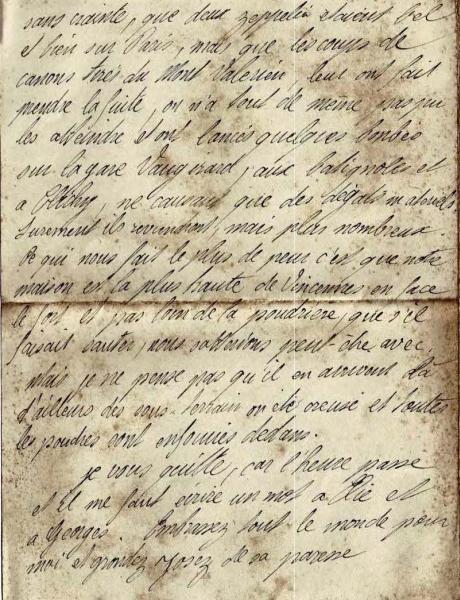 sans crainte, que deux zeppelin etaient bel
et bien sur Paris, mais que les coups de
canons tirés du Mont Valérien, leur ont fait
prendre la fuite, on n'a tout de même pas pu
les atteindre et ont lancés quelques bombes
sur la gare Vaugirard, aux Batignoles et
a Clichy, ne causant que des dégats materiels
Surement ils reviendront, mais plus nombreux.
Ce qui nous fait le plus de peur c'est que notre
maison est la plus haute de Vincennes en face
le fort et pas loin de la poudrière, que s'il
faisait sauter, nous sauterions peut-être avec,
mais je ne pense pas qu'il en arrivent là
d'ailleurs des sous-terrain on été creusé et toutes
les poudres sont enfouies dedans.
je vous quitte, car l'heure passe
et il me faut écrire un mot a Elie et
a Georges. Embrassez tout le monde pour
moi et grondez de sa paresse